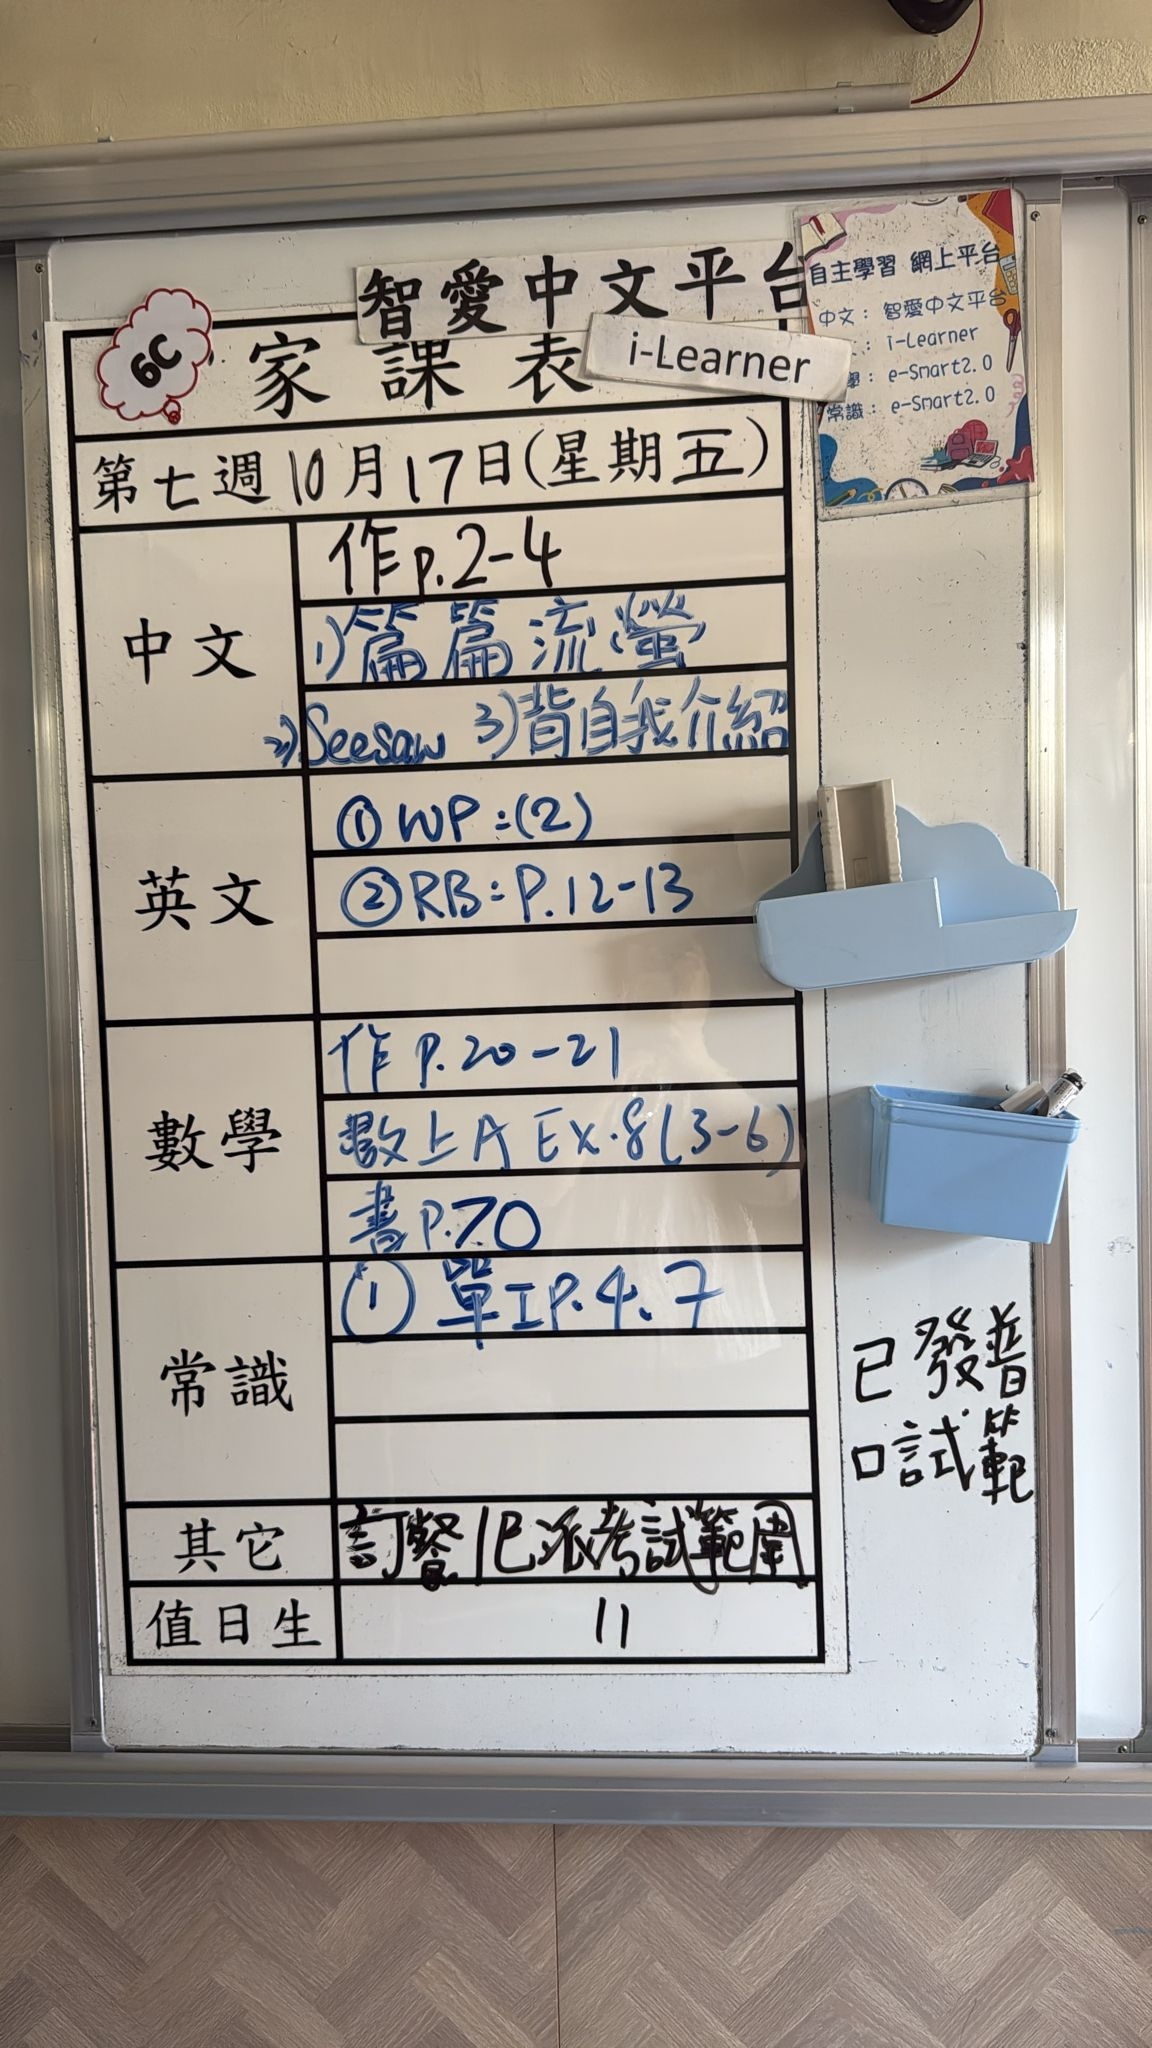 智愛中文平台
i-Learner
6C
家課表
第七週10月17日(星期五)
中文
作p.2-4
1)篇篇流螢
2)Seesaw 3)背自我介紹
英文
① WP:(2)
② RB:P.12-13
數學
作P.20-21
數上A Ex.8(3-6)
書P.70
常識
① 單I P.4、7
其它
訂醫 已派考試範圍
值日生
11
自主學習 網上平台
中文: 智愛中文平台
: i-Learner
學: e-Smart2.0
常識: e-Smart2.0
已發普
口試範